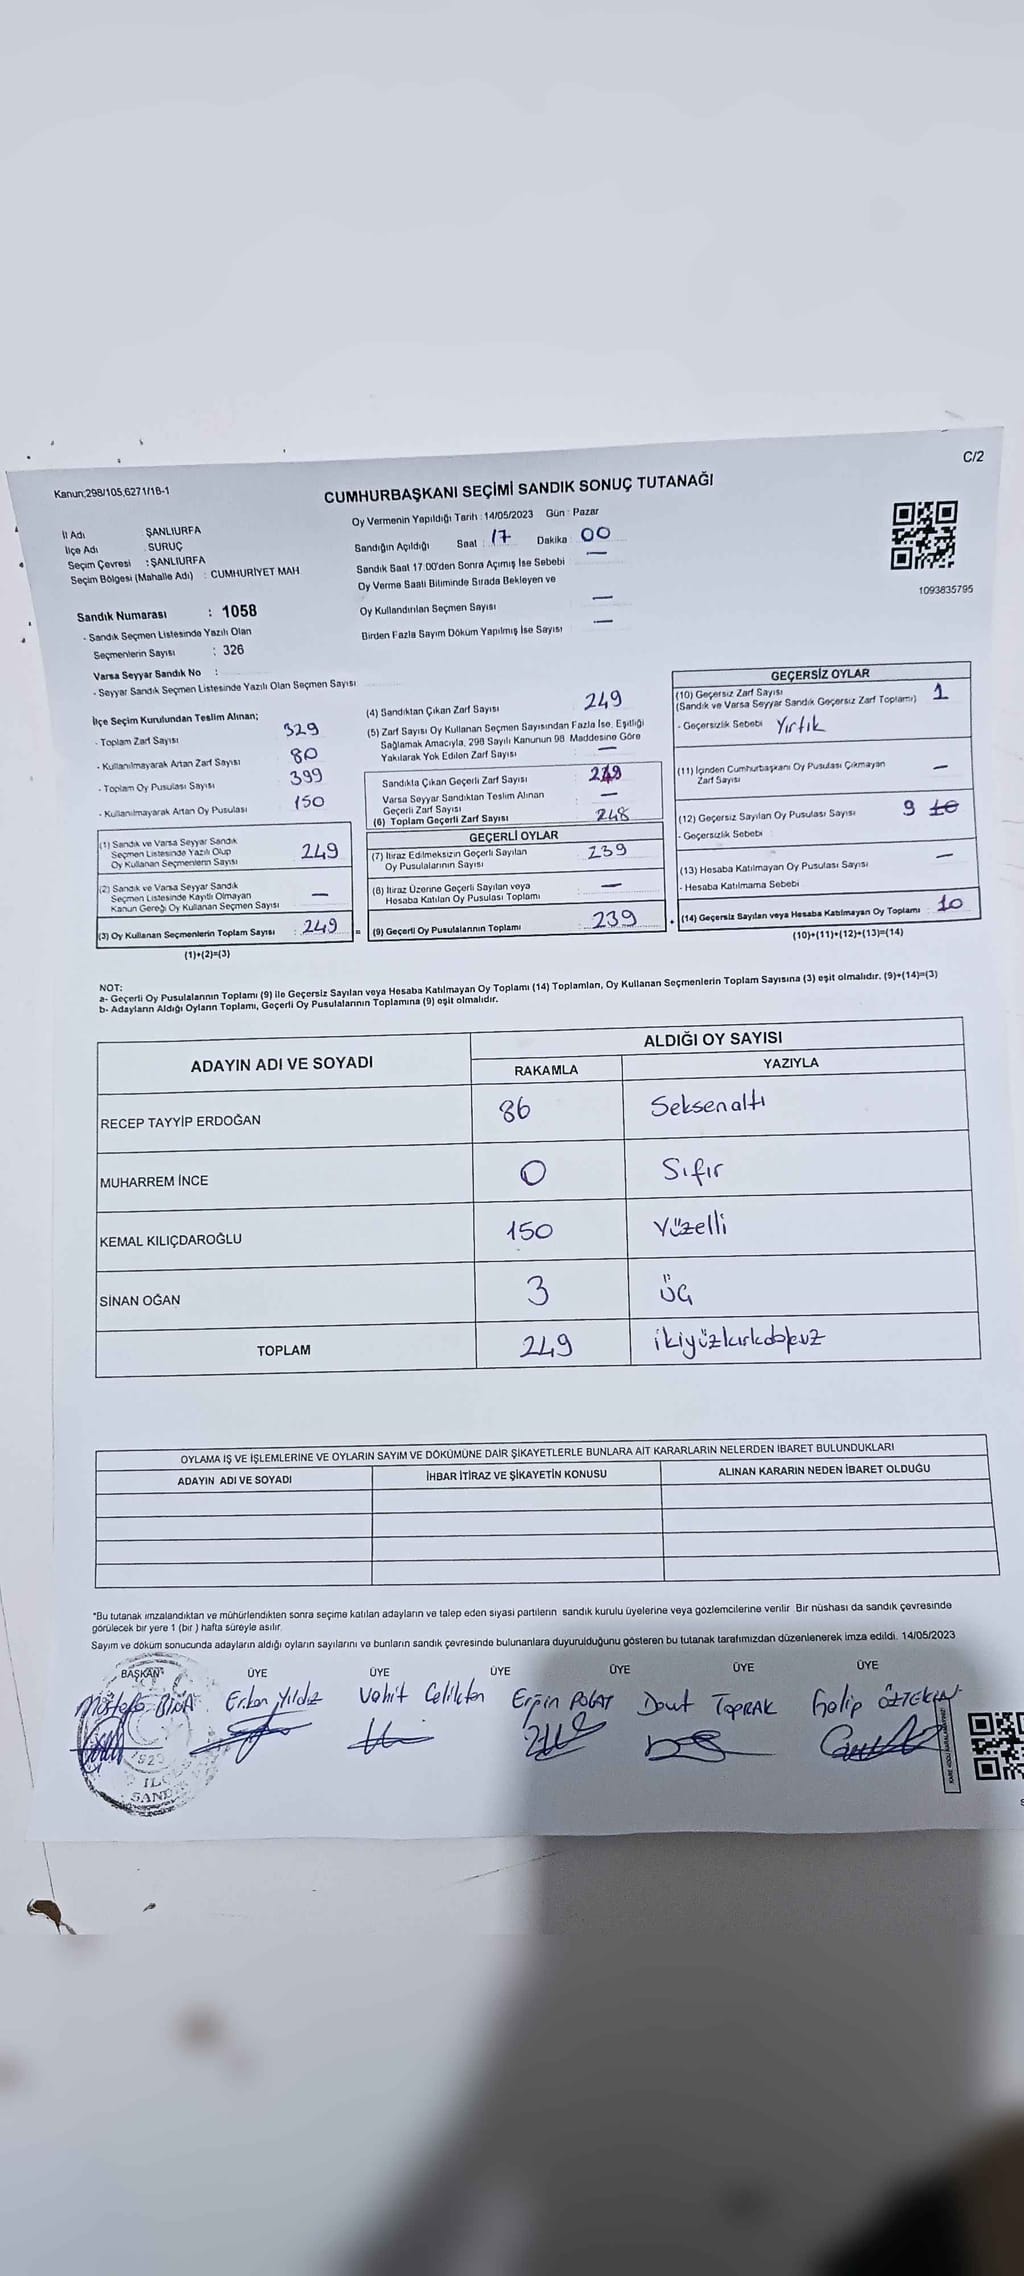 C/2
Kanun;298/105,6271/18-1
CUMHURBAŞKANI SEÇİMİ SANDIK SONUÇ TUTANAĞI
İl Adı : ŞANLIURFA
İlçe Adı : SURUÇ
Seçim Çevresi : ŞANLIURFA
Seçim Bölgesi (Mahalle Adı) : CUMHURİYET MAH
Oy Vermenin Yapıldığı Tarih : 14/05/2023 Gün : Pazar
Sandığın Açıldığı Saat : 17 Dakika : 00
Sandık Saat 17:00'den Sonra Açımış İse Sebebi —
Oy Verme Saati Bitiminde Sırada Bekleyen ve
Oy Kullandırılan Seçmen Sayısı —
Birden Fazla Sayım Döküm Yapılmış İse Sayısı —
1093835795
Sandık Numarası : 1058
- Sandık Seçmen Listesinde Yazılı Olan
Seçmenlerin Sayısı : 326
Varsa Seyyar Sandık No :
- Seyyar Sandık Seçmen Listesinde Yazılı Olan Seçmen Sayısı
İlçe Seçim Kurulundan Teslim Alınan;
- Toplam Zarf Sayısı 329
- Kullanılmayarak Artan Zarf Sayısı 80
- Toplam Oy Pusulası Sayısı 399
- Kullanılmayarak Artan Oy Pusulası 150
(1) Sandık ve Varsa Seyyar Sandık
Seçmen Listesinde Yazılı Olup
Oy Kullanan Seçmenlerin Sayısı 249
(2) Sandık ve Varsa Seyyar Sandık
Seçmen Listesinde Kayıtlı Olmayan
Kanun Gereği Oy Kullanan Seçmen Sayısı —
(3) Oy Kullanan Seçmenlerin Toplam Sayısı : 249 =
(1)+(2)=(3)
(4) Sandıktan Çıkan Zarf Sayısı 249
(5) Zarf Sayısı Oy Kullanan Seçmen Sayısından Fazla İse, Eşitliği
Sağlamak Amacıyla, 298 Sayılı Kanunun 98. Maddesine Göre
Yakılarak Yok Edilen Zarf Sayısı —
Sandıkta Çıkan Geçerli Zarf Sayısı
Varsa Seyyar Sandıktan Teslim Alınan
Geçerli Zarf Sayısı —
(6) Toplam Geçerli Zarf Sayısı 248
GEÇERLİ OYLAR
(7) İtiraz Edilmeksizin Geçerli Sayılan
Oy Pusulalarının Sayısı 239
(8) İtiraz Üzerine Geçerli Sayılan veya
Hesaba Katılan Oy Pusulası Toplamı —
(9) Geçerli Oy Pusulalarının Toplamı 239 +
GEÇERSİZ OYLAR
(10) Geçersiz Zarf Sayısı
(Sandık ve Varsa Seyyar Sandık Geçersiz Zarf Toplamı) 1
- Geçersizlik Sebebi Yırtık
(11) İçinden Cumhurbaşkanı Oy Pusulası Çıkmayan
Zarf Sayısı —
(12) Geçersiz Sayılan Oy Pusulası Sayısı 9 10
- Geçersizlik Sebebi :
(13) Hesaba Katılmayan Oy Pusulası Sayısı —
- Hesaba Katılmama Sebebi
(14) Geçersiz Sayılan veya Hesaba Katılmayan Oy Toplamı 10
(10)+(11)+(12)+(13)=(14)
NOT:
a- Geçerli Oy Pusulalarının Toplamı (9) ile Geçersiz Sayılan veya Hesaba Katılmayan Oy Toplamı (14) Toplamları, Oy Kullanan Seçmenlerin Toplam Sayısına (3) eşit olmalıdır. (9)+(14)=(3)
b- Adayların Aldığı Oyların Toplamı, Geçerli Oy Pusulalarının Toplamına (9) eşit olmalıdır.
ADAYIN ADI VE SOYADI ALDIĞI OY SAYISI
RAKAMLA YAZIYLA
RECEP TAYYİP ERDOĞAN 86 Seksenaltı
MUHARREM İNCE 0 Sıfır
KEMAL KILIÇDAROĞLU 150 Yüzelli
SİNAN OĞAN 3 üç
TOPLAM 249 ikiyüzkırkdokuz
OYLAMA İŞ VE İŞLEMLERİNE VE OYLARIN SAYIM VE DÖKÜMÜNE DAİR ŞİKAYETLERLE BUNLARA AİT KARARLARIN NELERDEN İBARET BULUNDUKLARI
ADAYIN ADI VE SOYADI İHBAR İTİRAZ VE ŞİKAYETİN KONUSU ALINAN KARARIN NEDEN İBARET OLDUĞU
*Bu tutanak imzalandıktan ve mühürlendikten sonra seçime katılan adayların ve talep eden siyasi partilerin sandık kurulu üyelerine veya gözlemcilerine verilir. Bir nüshası da sandık çevresinde
görülecek bir yere 1 (bir) hafta süreyle asılır.
Sayım ve döküm sonucunda adayların aldığı oyların sayılarını ve bunların sandık çevresinde bulunanlara duyurulduğunu gösteren bu tutanak tarafımızdan düzenlenerek imza edildi. 14/05/2023
BAŞKAN ÜYE ÜYE ÜYE ÜYE ÜYE ÜYE
Mustafa BİNA Erkan Yıldız Vahit Çelikten Ergin POLAT Davut TOPRAK Galip ÖZTEKİN
1923
SAND